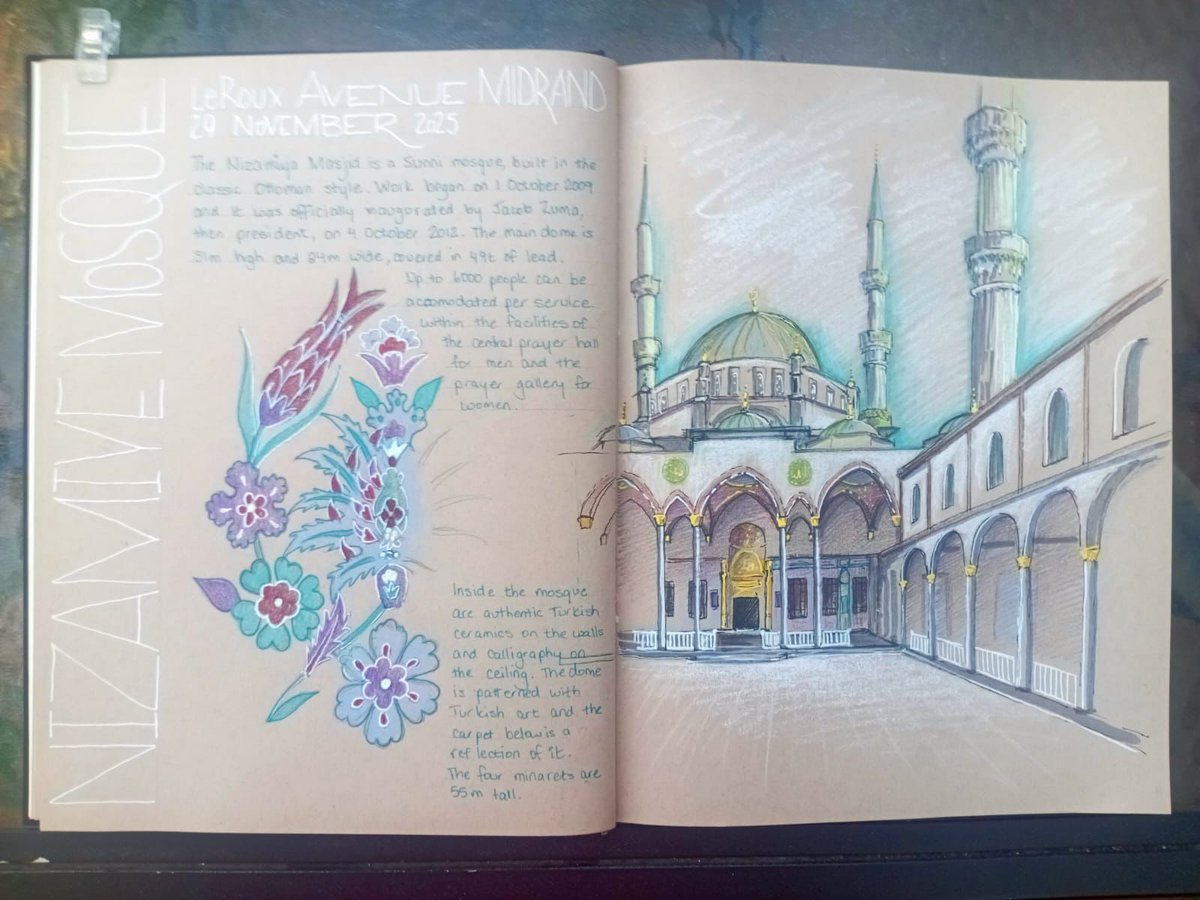 NIZAMIYE MOSQUE
LeRoux AVENUE MIDRAND
29 NOVEMBER 2025
The Nizamiya Masjid is a Sunni mosque, built in the
classic Ottoman style. Work began on 1 October 2009
and it was officially inaugurated by Jacob Zuma,
then president, on 4 October 2012. The main dome is
31m high and 24m wide, covered in 49t of lead.
Up to 6000 people can be
accomodated per service
within the facilities of
the central prayer hall
for men and the
prayer gallery for
women.
Inside the mosque
are authentic Turkish
ceramics on the walls
and calligraphy on
the ceiling. The dome
is patterned with
Turkish art and the
carpet below is a
reflection of it.
The four minarets are
55m tall.